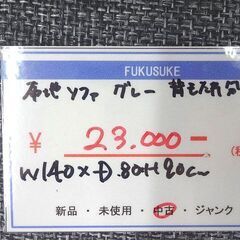 FUKUSUKE
布地 ソファ グレー 背もたれ
¥ 23.000-
W140×D80H90cm
新品・未使用・中古・ジャンク